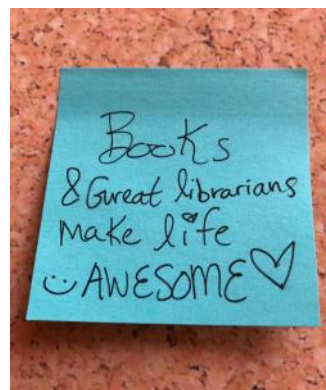 Books
& Great librarians
make life
AWESOME